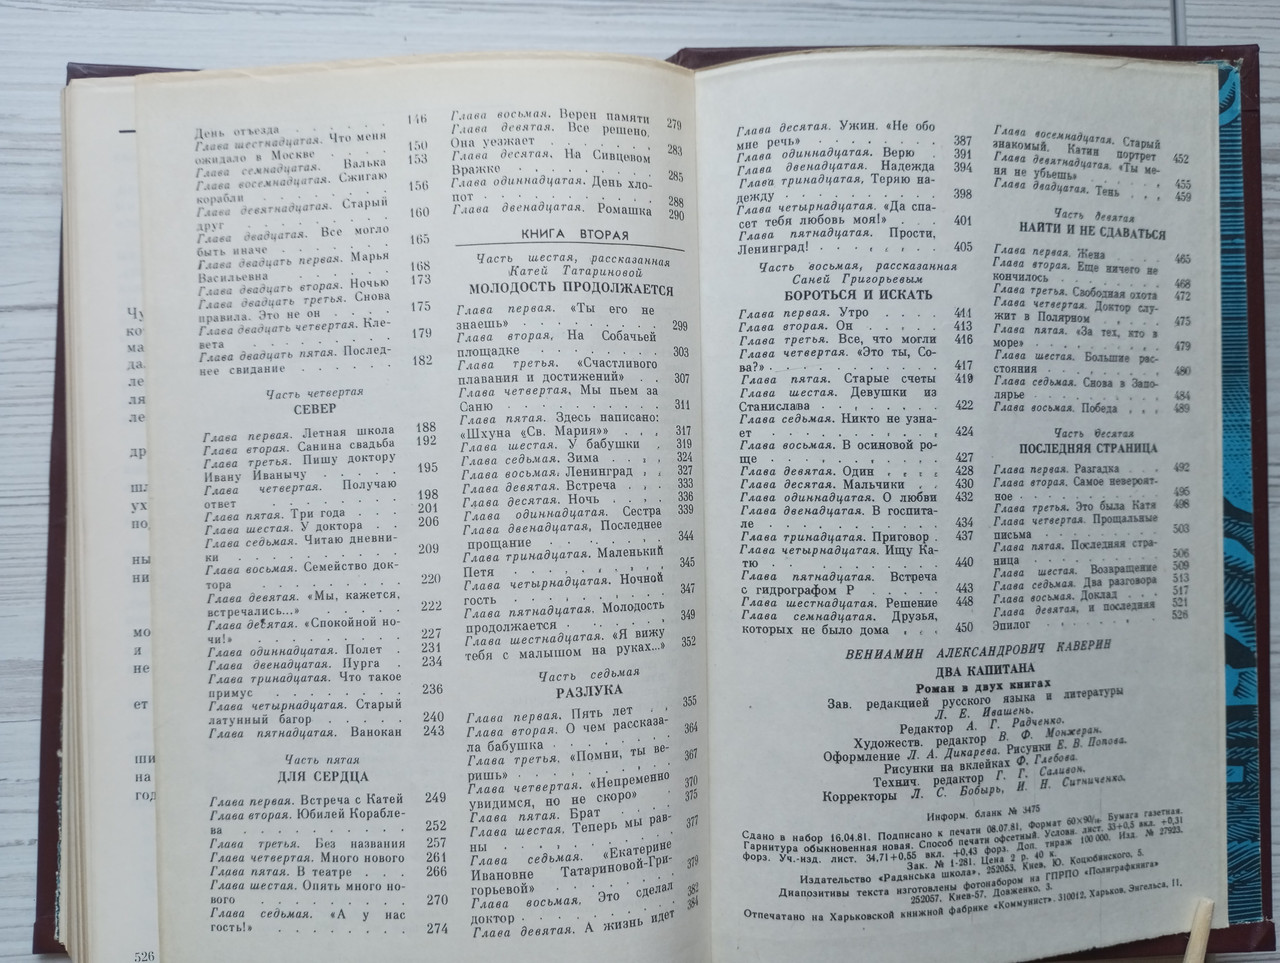 День отъезда . . . . . . 146
Глава шестнадцатая. Что меня
ожидало в Москве . . . . 150
Глава семнадцатая. Валька 153
Глава восемнадцатая. Сжигаю
корабли . . . . . . . 156
Глава девятнадцатая. Старый
друг . . . . . . . 160
Глава двадцатая. Все могло
быть иначе . . . . . . 165
Глава двадцать первая. Марья
Васильевна . . . . . . 168
Глава двадцать вторая. Ночью 173
Глава двадцать третья. Снова
правила. Это не он . . . . 175
Глава двадцать четвертая. Кле-
вета . . . . . . . 179
Глава двадцать пятая. Послед-
нее свидание . . . . . . 182
Часть четвертая
СЕВЕР
Глава первая. Летная школа 188
Глава вторая. Санина свадьба 192
Глава третья. Пишу доктору
Ивану Иванычу . . . . 195
Глава четвертая. Получаю
ответ . . . . . . . 198
Глава пятая. Три года . . . 201
Глава шестая. У доктора . . 206
Глава седьмая. Читаю дневни-
ки . . . . . . . . 209
Глава восьмая. Семейство док-
тора . . . . . . . 220
Глава девятая. «Мы, кажется,
встречались...» . . . . . 222
Глава десятая. «Спокойной но-
чи!» . . . . . . . 227
Глава одиннадцатая. Полет . 231
Глава двенадцатая. Пурга . . 234
Глава тринадцатая. Что такое
примус . . . . . . . 236
Глава четырнадцатая. Старый
латунный багор . . . . . 240
Глава пятнадцатая. Ванокан 243
Часть пятая
ДЛЯ СЕРДЦА
Глава первая. Встреча с Катей 249
Глава вторая. Юбилей Корабле-
ва . . . . . . . . 252
Глава третья. Без названия 257
Глава четвертая. Много нового 261
Глава пятая. В театре . . . 266
Глава шестая. Опять много но-
вого . . . . . . . 270
Глава седьмая. «А у нас
гость!» . . . . . . . 274
526
Глава восьмая. Верен памяти 279
Глава девятая. Все решено.
Она уезжает . . . . . 283
Глава десятая. На Сивцевом
Вражке . . . . . . . 285
Глава одиннадцатая. День хло-
пот . . . . . . . . 288
Глава двенадцатая. Ромашка 290
КНИГА ВТОРАЯ
Часть шестая, рассказанная
Катей Татариновой
МОЛОДОСТЬ ПРОДОЛЖАЕТСЯ
Глава первая. «Ты его не
знаешь» . . . . . . . 299
Глава вторая, На Собачьей
площадке . . . . . . 303
Глава третья. «Счастливого
плавания и достижений» . . 307
Глава четвертая, Мы пьем за
Саню . . . . . . . 311
Глава пятая. Здесь написано:
«Шхуна «Св. Мария»» . . . 317
Глава шестая. У бабушки . 319
Глава седьмая. Зима . . . 324
Глава восьмая. Ленинград . . 327
Глава девятая. Встреча . . . 333
Глава десятая. Ночь . . . 336
Глава одиннадцатая. Сестра 339
Глава двенадцатая, Последнее
прощание . . . . . . 344
Глава тринадцатая. Маленький
Петя . . . . . . . 345
Глава четырнадцатая. Ночной
гость . . . . . . . 347
Глава пятнадцатая. Молодость
продолжается . . . . . 349
Глава шестнадцатая. «Я вижу
тебя с малышом на руках...» 352
Часть седьмая
РАЗЛУКА
Глава первая. Пять лет . . 355
Глава вторая. О чем рассказа-
ла бабушка . . . . . . 364
Глава третья, «Помни, ты ве-
ришь» . . . . . . . 367
Глава четвертая. «Непременно
увидимся, но не скоро» . . 370
Глава пятая. Брат . . . . 375
Глава шестая, Теперь мы рав-
ны . . . . . . . . 377
Глава седьмая. «Екатерине
Ивановне Татариновой-Гри-
горьевой» . . . . . . 379
Глава восьмая. Это сделал
доктор . . . . . . . 382
Глава девятая. А жизнь идет 384
Глава десятая. Ужин. «Не обо
мне речь» . . . . . . 387
Глава одиннадцатая. Верю . 391
Глава двенадцатая. Надежда 394
Глава тринадцатая, Теряю на-
дежду . . . . . . . 398
Глава четырнадцатая. «Да спа-
сет тебя любовь моя!» . . 401
Глава пятнадцатая. Прости,
Ленинград! . . . . . . 405
Часть восьмая, рассказанная
Саней Григорьевым
БОРОТЬСЯ И ИСКАТЬ
Глава первая. Утро . . . . 411
Глава вторая. Он . . . . 413
Глава третья. Все, что могли 416
Глава четвертая. «Это ты, Со-
ва?» . . . . . . . . 417
Глава пятая. Старые счеты 419
Глава шестая. Девушки из
Станислава . . . . . . 422
Глава седьмая. Никто не узна-
ет . . . . . . . . 424
Глава восьмая. В осиновой ро-
ще . . . . . . . . 427
Глава девятая. Один . . . . 428
Глава десятая. Мальчики . . 430
Глава одиннадцатая. О любви 432
Глава двенадцатая. В госпита-
ле . . . . . . . . 434
Глава тринадцатая. Приговор . 437
Глава четырнадцатая. Ищу Ка-
тю . . . . . . . . 440
Глава пятнадцатая. Встреча
с гидрографом Р . . . . . 443
Глава шестнадцатая. Решение 448
Глава семнадцатая. Друзья,
которых не было дома . . . 450
Глава восемнадцатая. Старый
знакомый. Катин портрет 452
Глава девятнадцатая. «Ты ме-
ня не убьешь» . . . . . 455
Глава двадцатая. Тень . . . 459
Часть девятая
НАЙТИ И НЕ СДАВАТЬСЯ
Глава первая. Жена . . . . 465
Глава вторая. Еще ничего не
кончилось . . . . . . 468
Глава третья. Свободная охота 472
Глава четвертая. Доктор слу-
жит в Полярном . . . . 475
Глава пятая. «За тех, кто в
море» . . . . . . . 479
Глава шестая. Большие рас-
стояния . . . . . . . 480
Глава седьмая. Снова в Запо-
лярье . . . . . . . 484
Глава восьмая. Победа . . . 489
Часть десятая
ПОСЛЕДНЯЯ СТРАНИЦА
Глава первая. Разгадка . . . 492
Глава вторая. Самое невероят-
ное . . . . . . . . 495
Глава третья. Это была Катя 498
Глава четвертая. Прощальные
письма . . . . . . . 503
Глава пятая. Последняя стра-
ница . . . . . . . 506
Глава шестая. Возвращение 509
Глава седьмая. Два разговора 513
Глава восьмая. Доклад . . . 517
Глава девятая, и последняя 521
Эпилог . . . . . . . 526
ВЕНИАМИН АЛЕКСАНДРОВИЧ КАВЕРИН
ДВА КАПИТАНА
Роман в двух книгах
Зав. редакцией русского языка и литературы
Л. Е. Ивашень.
Редактор А. Г. Радченко.
Художеств. редактор В. Ф. Монжеран.
Оформление Л. А. Дикарева. Рисунки Е. В. Попова.
Рисунки на вклейках Ф. Глебова.
Технич. редактор Г. Г. Саливон.
Корректоры Л. С. Бобырь, И. Н. Ситниченко.
Информ. бланк № 3475
Сдано в набор 16.04.81. Подписано к печати 08.07.81. Формат 60×90/₁₆. Бумага газетная.
Гарнитура обыкновенная новая. Способ печати офсетный. Условн. лист. 33+0,5 вкл. +0,31
форз. Уч.-изд. лист. 34,71+0,55 вкл. +0,43 форз. Доп. тираж 100 000. Изд. № 27923.
Зак. № 1-281. Цена 2 р. 40 к.
Издательство «Радянська школа», 252053, Киев, Ю. Коцюбинского, 5.
Диапозитивы текста изготовлены фотонабором на ГПРПО «Полиграфкнига»
252057, Киев-57, Довженко, 3.
Отпечатано на Харьковской книжной фабрике «Коммунист». 310012, Харьков, Энгельса, 11.